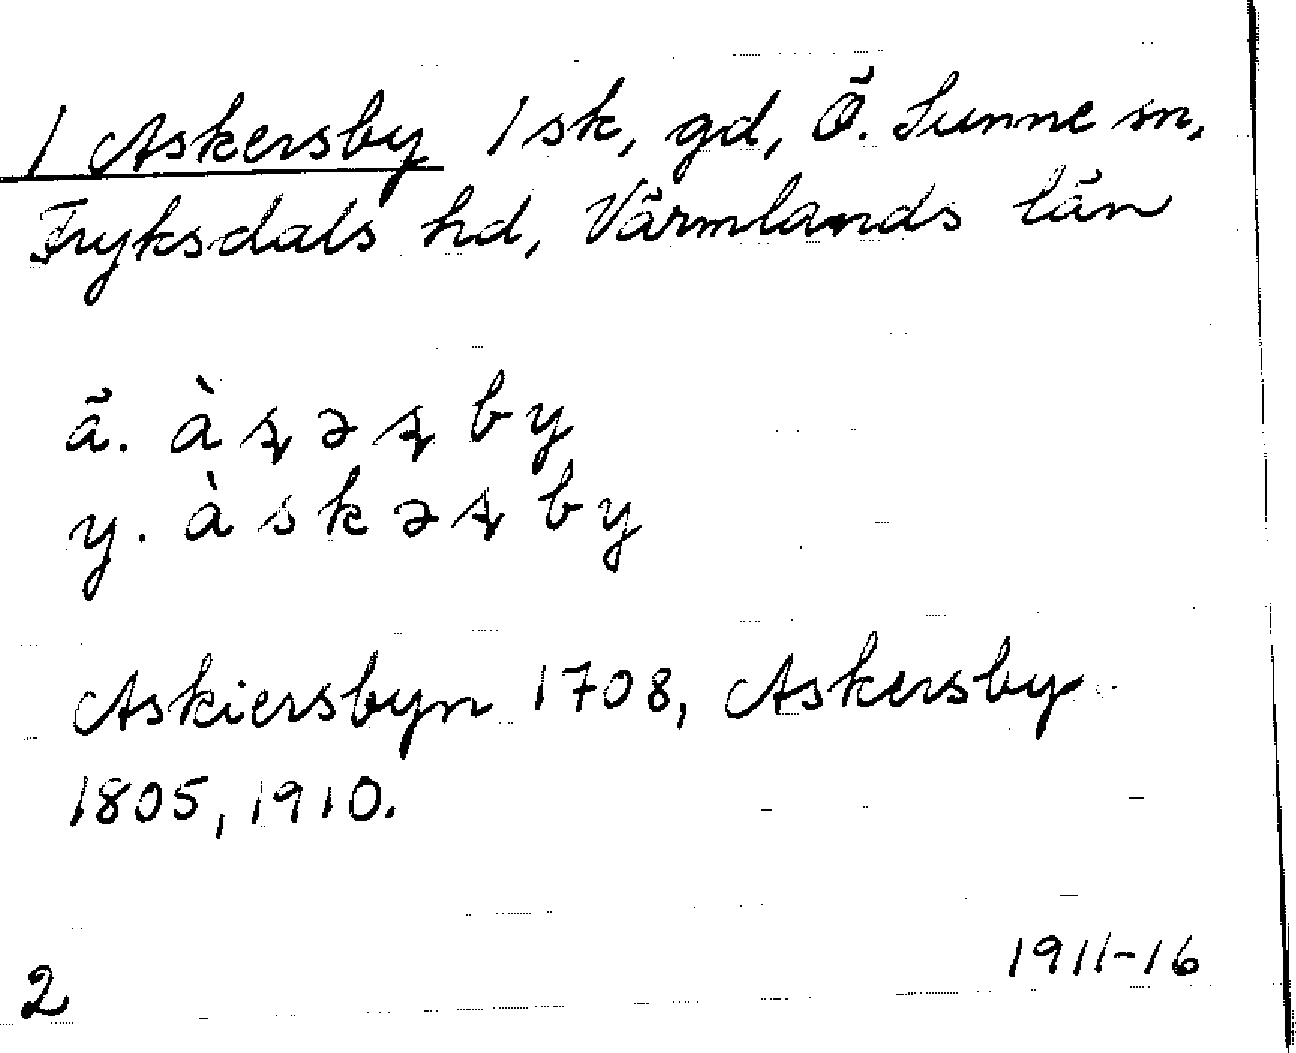 1 Askersby 1 sk, gd, Ö. Sunne sn,
Fryksdals hd, Värmlands län
ä. à ʂ ə ʂ b y
y. à s k ə ʂ b y
Askiersbyn 1708, Askersby
1805, 1910.
1911-16
2